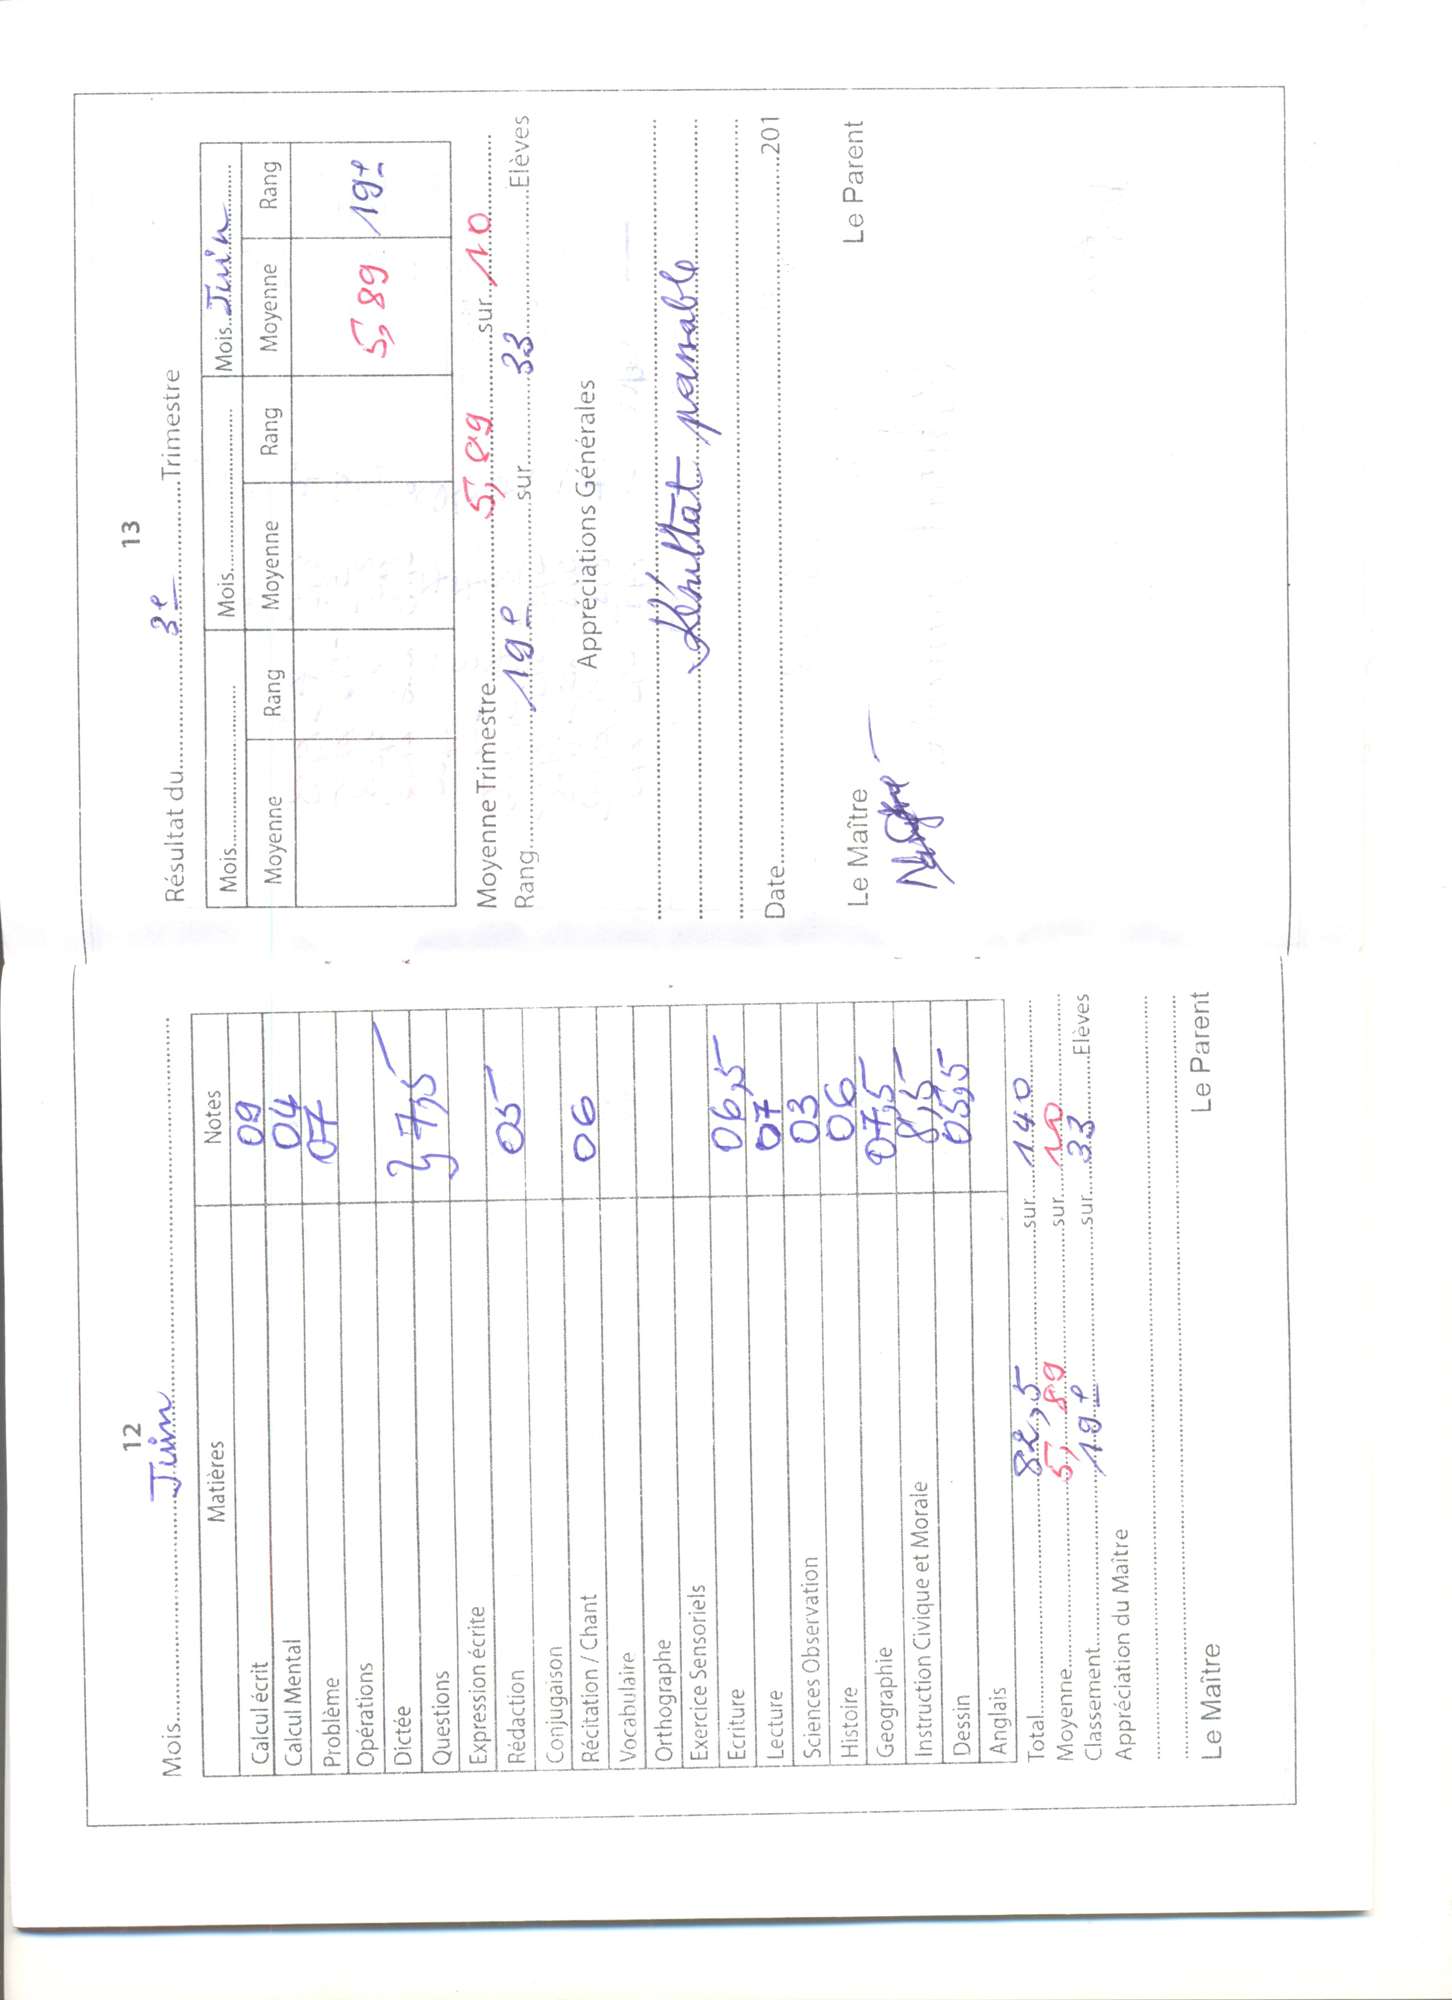 12
Mois Juin
Matières Notes
Calcul écrit 09
Calcul Mental 04
Problème 07
Opérations
Dictée
Questions } 7,5
Expression écrite
Rédaction 05
Conjugaison
Récitation / Chant 06
Vocabulaire
Orthographe
Exercice Sensoriels
Ecriture 06,5
Lecture 07
Sciences Observation 03
Histoire 06
Geographie 07,5
Instruction Civique et Morale 8,5
Dessin 05,5
Anglais
Total 82,5 sur 140
Moyenne 5,89 sur 10
Classement 19e sur 33 Elèves
Appréciation du Maître
Le Maître Le Parent
13
Résultat du 3e Trimestre
Mois Mois Mois Juin
Moyenne Rang Moyenne Rang Moyenne Rang
5,89 19e
Moyenne Trimestre 5,89 sur 10
Rang 19e sur 33 Elèves
Appréciations Générales
Résultat passable
Date 201
Le Maître Le Parent